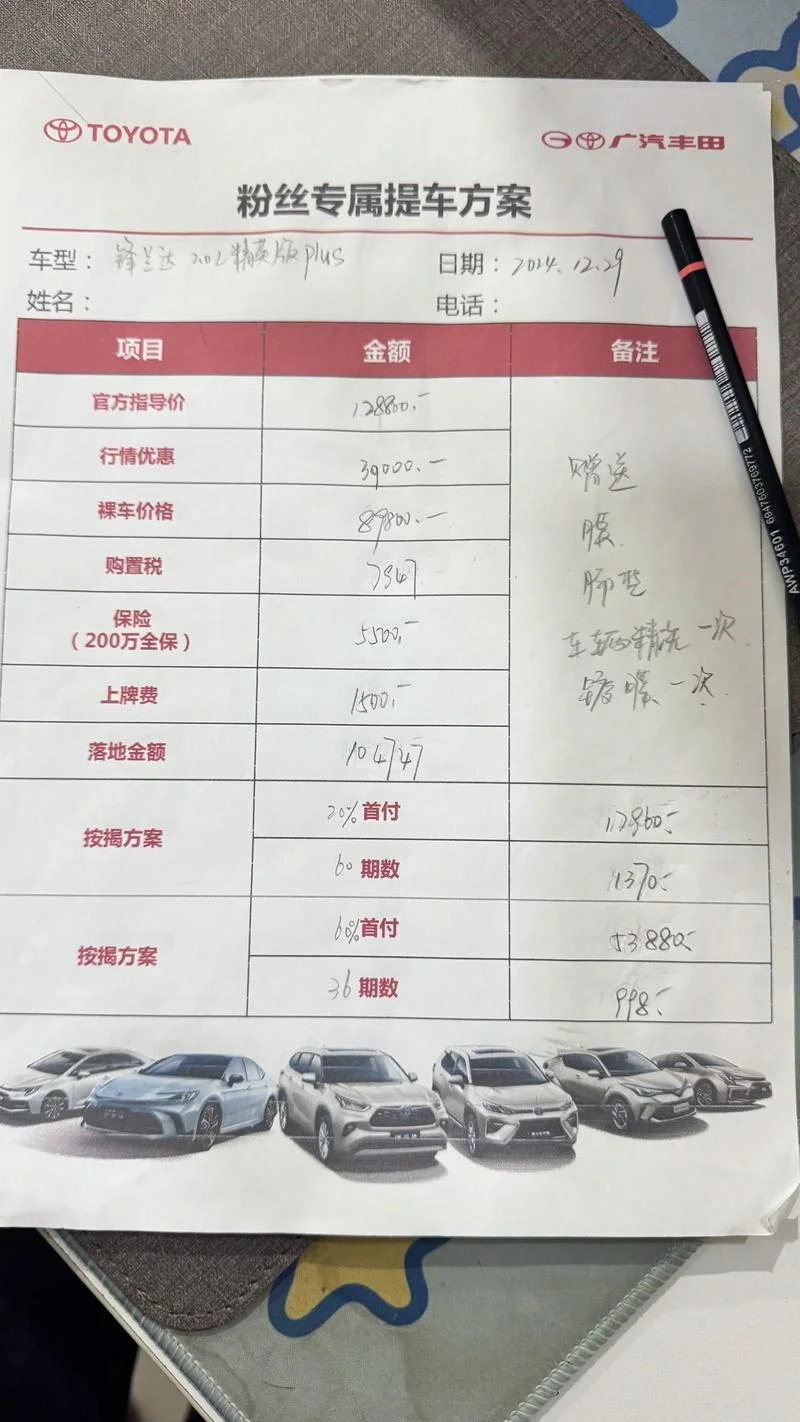 TOYOTA 广汽丰田
粉丝专属提车方案
车型： 锋兰达 2.0L精英版plus 日期：2024.12.29
姓名： 电话：
项目 金额 备注
官方指导价 128800.-
行情优惠 39000.-
裸车价格 89800.-
购置税 7947
保险
（200万全保） 5500.-
上牌费 1500.-
落地金额 104747
赠送
膜.
脚垫
车辆精洗一次
镀膜一次.
按揭方案 20%首付 17960.-
60期数 1370.-
按揭方案 60%首付 53880.-
36期数 998.-
AWP34601 6947503769772